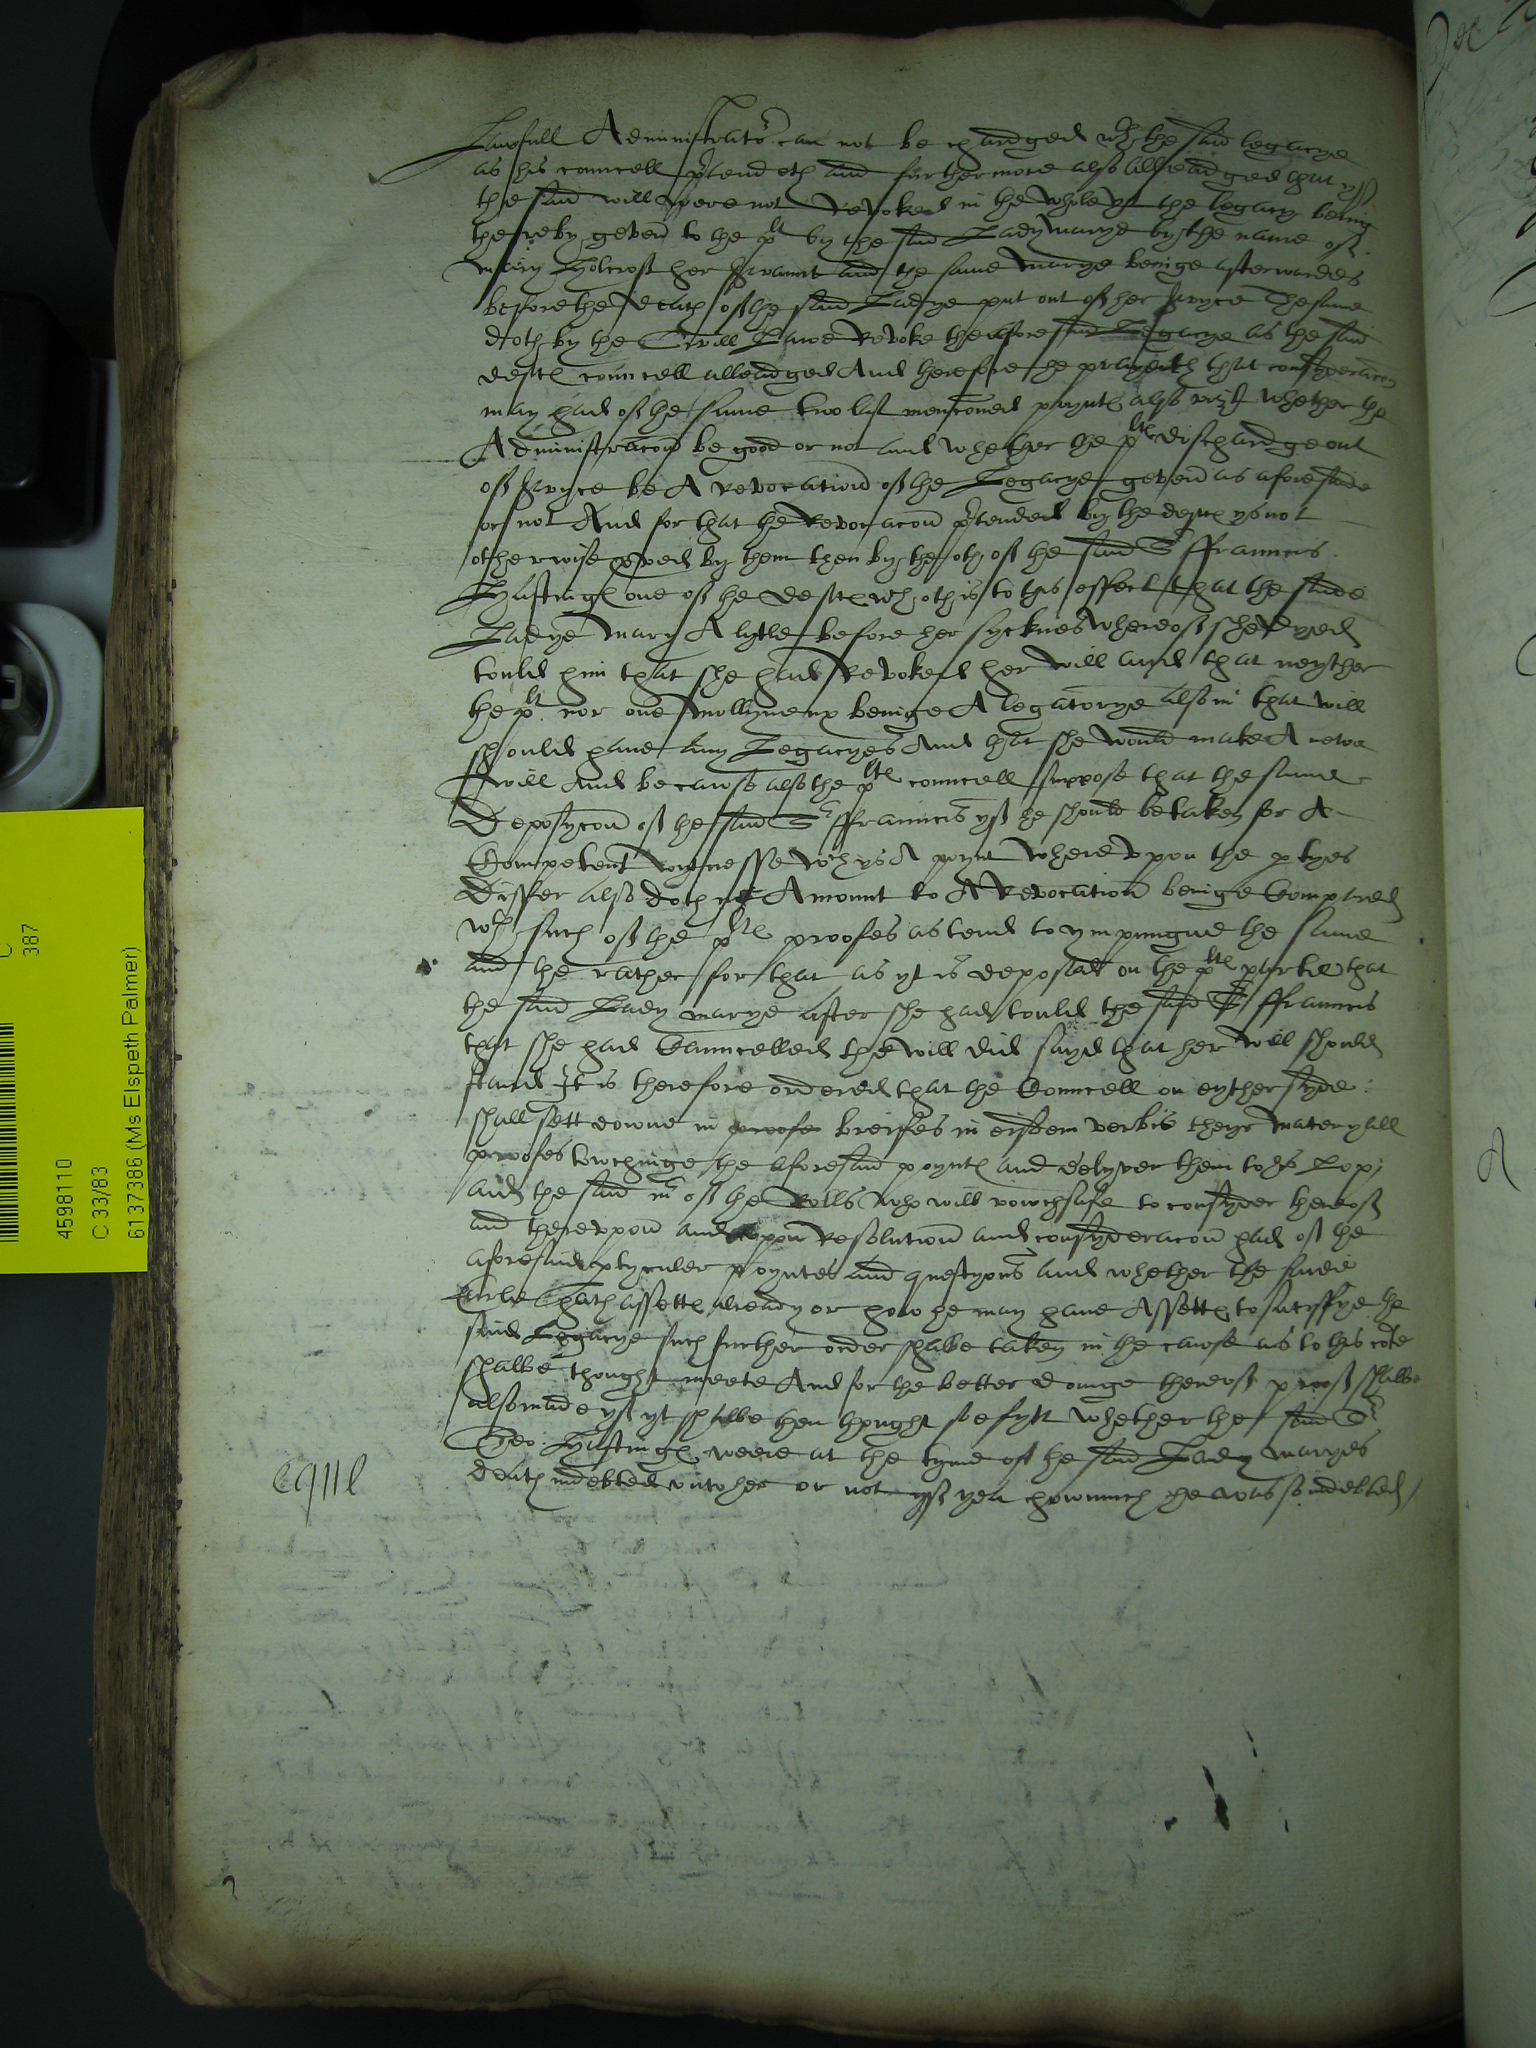 Lawfull Administrator can not be chardged wth the said legacye
as his councell ptendeth and farthermore also alleadged that yf
the said will were not Revoked in the whole yt the legacy being
thereby geven to the plt by the said Lady Marye by the name of
Mary Holcroft her servaunt and the same Marye beinge afterwardes
before the death of the said Ladye put out of her servyce the same
doth by the Civill Lawe Revoke the aforesaid Legacye as the said
deftes councell alleadged And therefore he prayeth that consyderacon
may had of the same two last mencioned poyntes also vizt whether the
Administracion be good or not and whether the pltes dischardge out
of servyce be A revocation of the Legacye geven as aforesaide
or not And for that the Revocacion ptended by the deftes ys not
otherwise pved by them then by the oth of the said Sr ffrauncis
Hastinges one of the deftes wch oth is to this effect that the saide
Ladye Mary A lytle before her sycknes whereof she dyed
tould him that she had Revoked her will and that neyther
the plt nor one Mollyneux beinge A legatorye also in that will
should have any Legacyes And that she would make A newe
will And because also the pltes councell suppose that the same
Deposycion of the said Sr ffrauncis yf he should be taken for A
Competent wytnesse wch ys A poynt whereupon the ptyes
Differ also doth not Amount to A Revocation beinge Compared
wth such of the pltes proofes as tend to ympungne the same
and the rather for that as yt is deposed on the pltes parte that
the said Lady Marye after she had tould the said Sr ffrauncis
that she had Cauncelled the will did saye that her will should
stand It is therefore ordered that the Councell on eyther syde
shall sett downe in proofe breifes in eisdem verbis theyr materyall
proofes towchinge the aforesaid poyntes and delyver them to his Lop
and the said mr of the Rolls who will vowchsafe to consyder thereof
and thereupon and upon Resolution and consyderacion had of the
aforesaid ptyculer poyntes and questyons and whether the saide
Earle hath assettes already or how he may have Assettes to satysfye the
said Legacye such further order shalbe taken in the cause as to this cote
shalbe thought meete And for the better doinge thereof proof shalbe
also made yf yt shalbe then thought soe fytt whether the said Sr
Geo: Hastinges were at the tyme of the said Lady Maryes
death indebted unto her or not yf yea howmuch he was so indebted /
C
387
4598110
C 33/83
6137386 (Ms Elspeth Palmer)